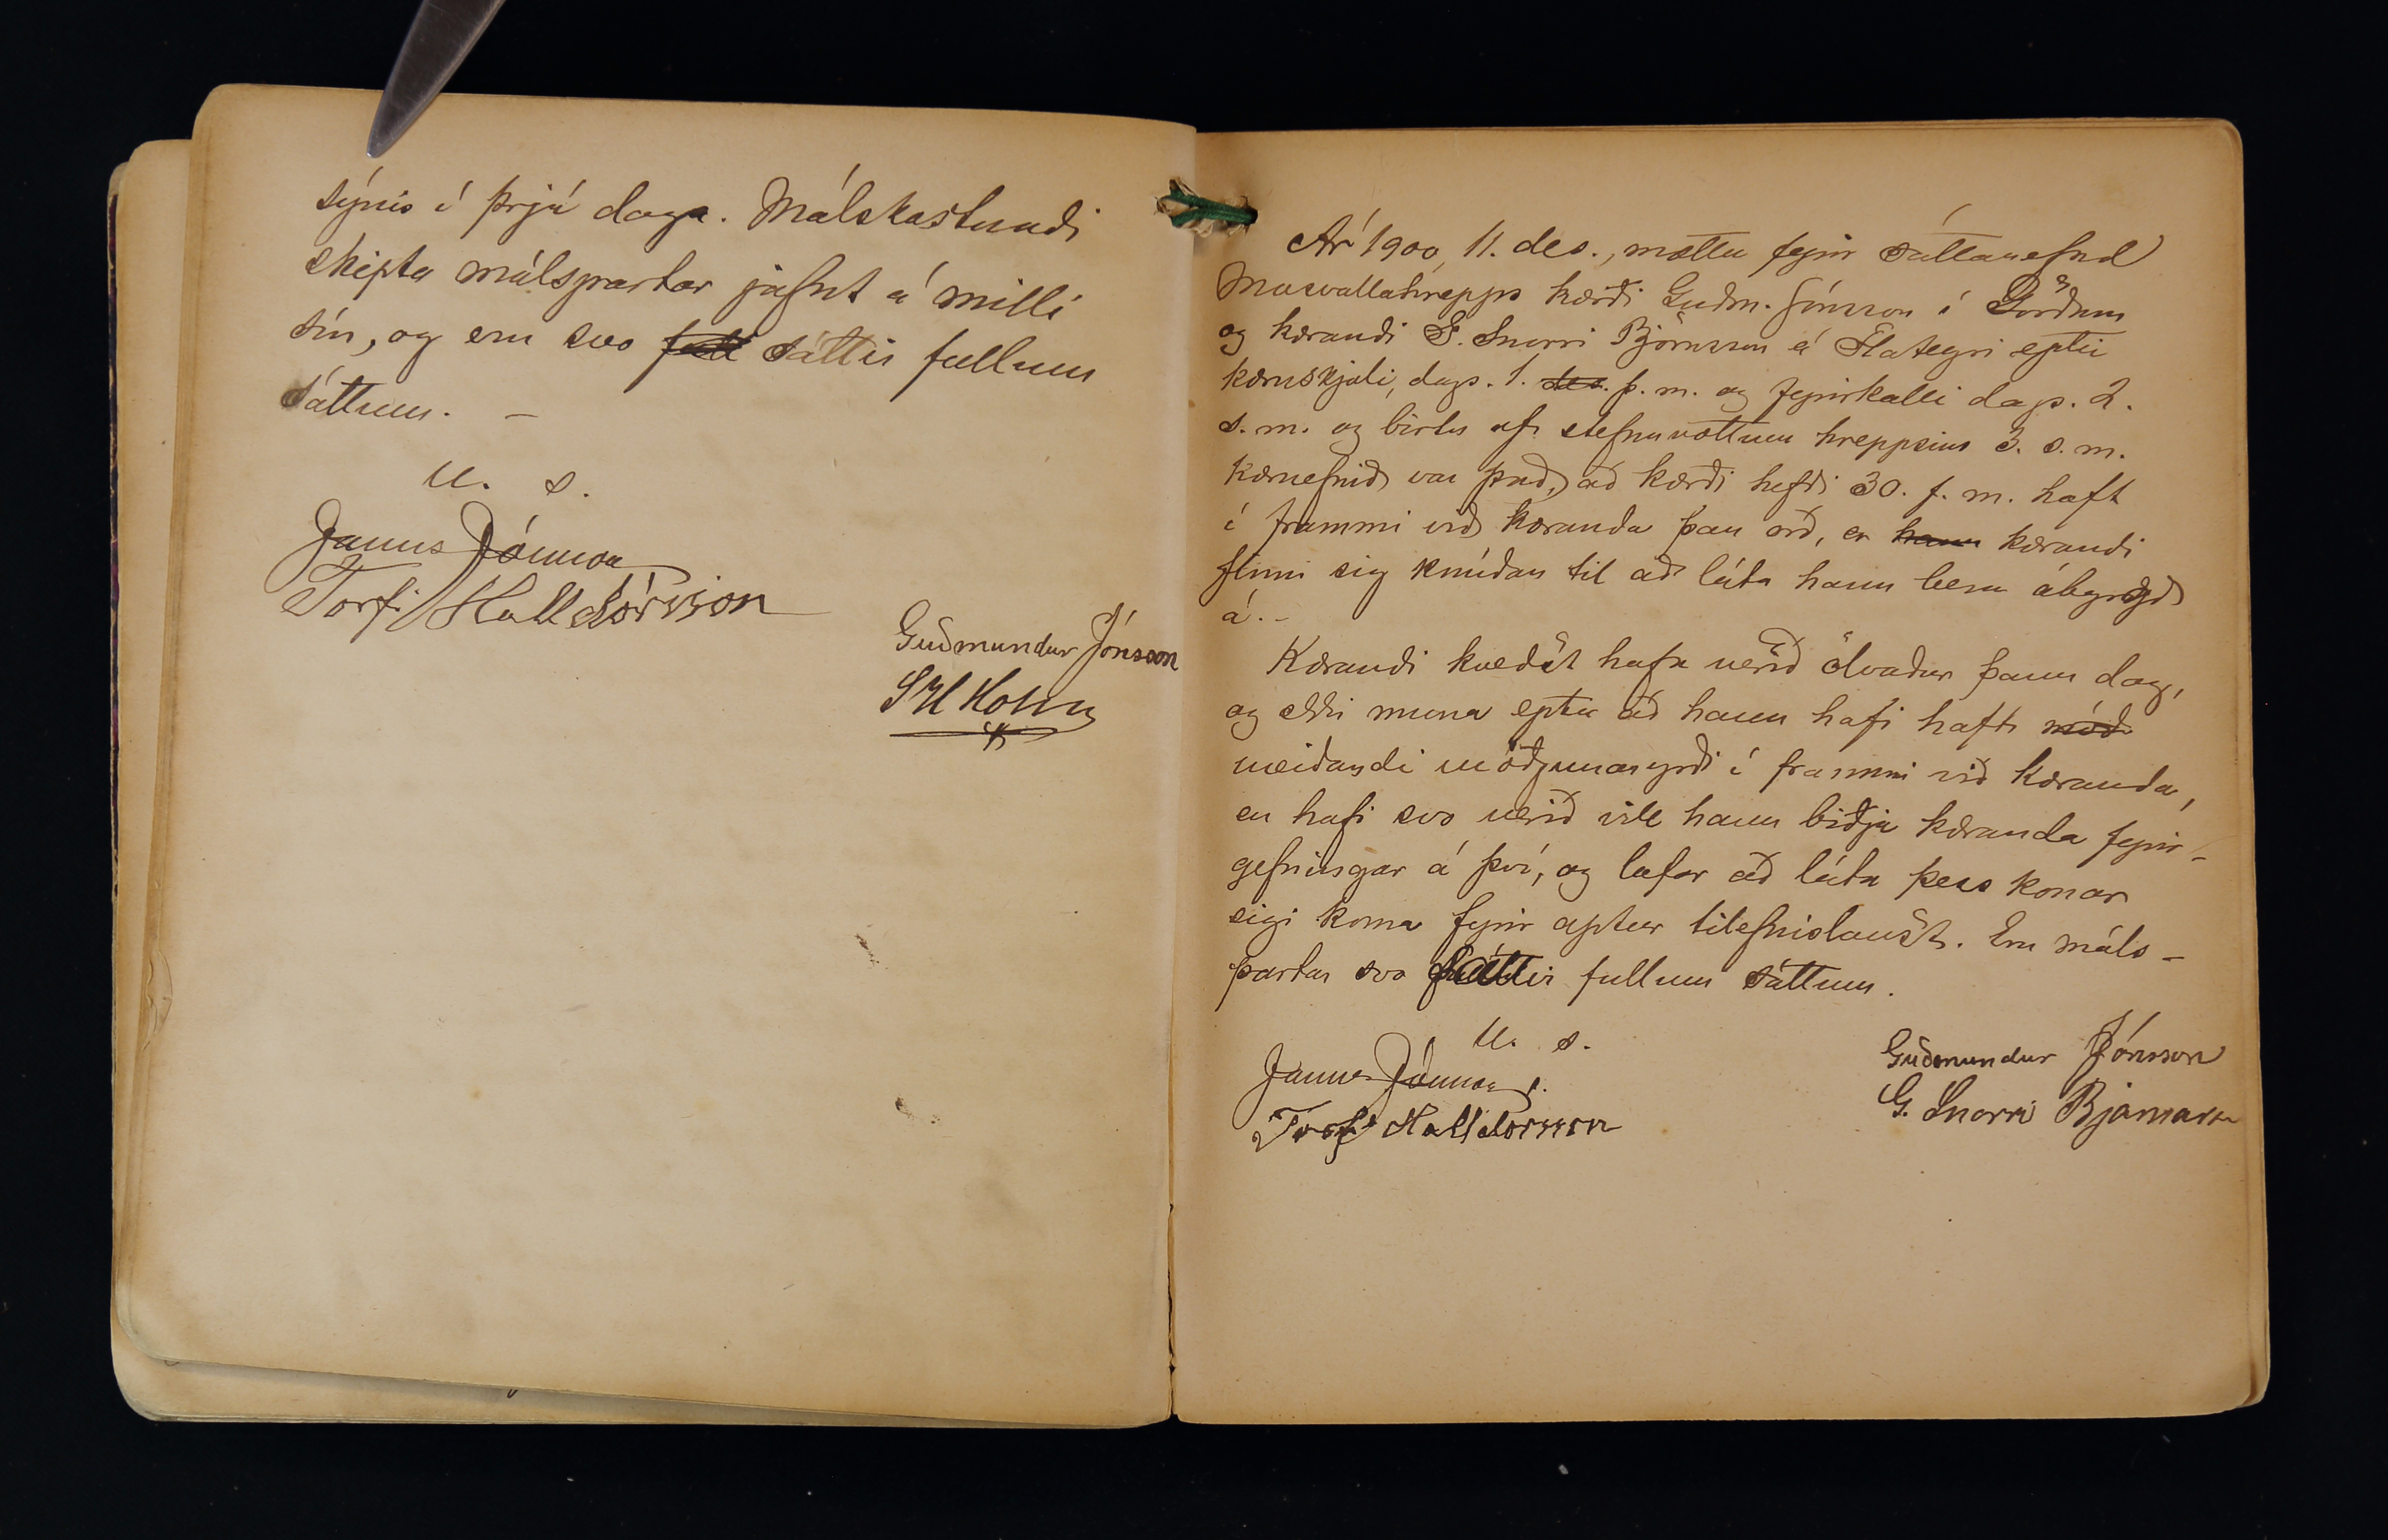 sýnis í þrjá daga. Málskostnaði
skipta málspartar jafnt á milli
sín, og eru svo full sáttir fullum
sáttum. –
U. s.
Janus Jónsson
Torfi Halldórsson
Guðmundur Jónsson
S H Holm
Ár 1900, 11. des., mættu fyrir sáttanefnd
Mosvallahrepps kærði Guðm. Jónsson í Görðum
og kærandi G. Snorri Björnsson á Flateyri eptir
kæruskjali, dags. 1. des. þ. m. og fyrirkalli dags. 2.
s. m. og birtu af stefnuvottum hreppsins 3. s. m.
Kæruefnið var það, að kærði hefði 30. f. m. haft
í frammi við kæranda þau orð, er hann kærandi
finni sig knúðan til að láta hann bera ábyrgð
á. –
Kærandi kveðst hafa verið ölvaður þann dag,
og ekki muna eptir að hann hafi haft móð
meiðandi móðgunaryrði í frammi við kæranda,
en hafi svo verið vill hann biðja kæranda fyrir-
gefningar á því, og lofar að láta þess konar
eigi koma fyrir aptur tilefnislaust. Eru máls-
partar svo sáttir fullum sáttum.
U. s.
Janus Jónsson
Torfi Halldorsson
Guðmundur Jónsson
G. Snorri Bjarnarson